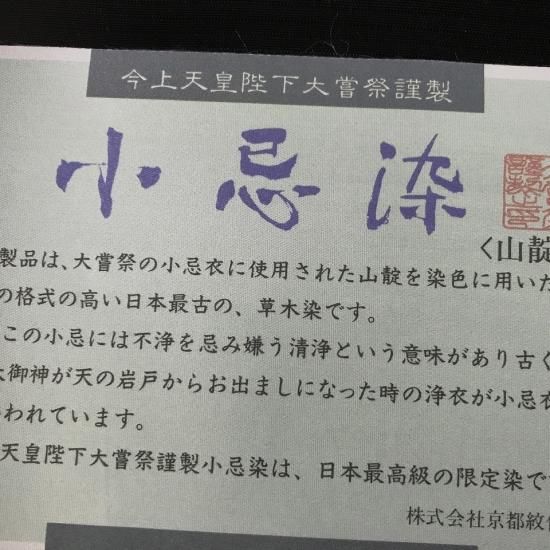 今上天皇陛下大嘗祭謹製
小忌染
<山靛
製品は、大嘗祭の小忌衣に使用された山靛を染色に用いた
の格式の高い日本最古の、草木染です。
この小忌には不浄を忌み嫌う清浄という意味があり古く
大御神が天の岩戸からお出ましになった時の浄衣が小忌衣
われています。
天皇陛下大嘗祭謹製小忌染は、日本最高級の限定染で
株式会社京都紋